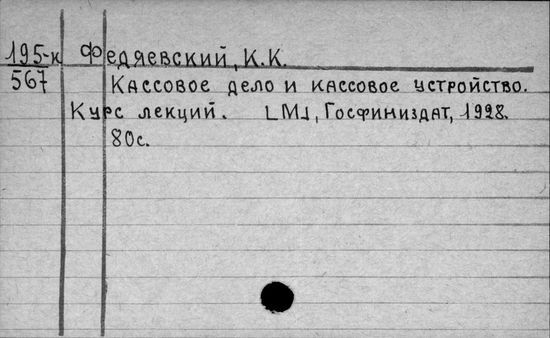 195-к Федяевский, К.К.
567 Кассовое дело и кассовое устройство.
Курс лекций. [М], Госфиниздат, 1928.
80с.